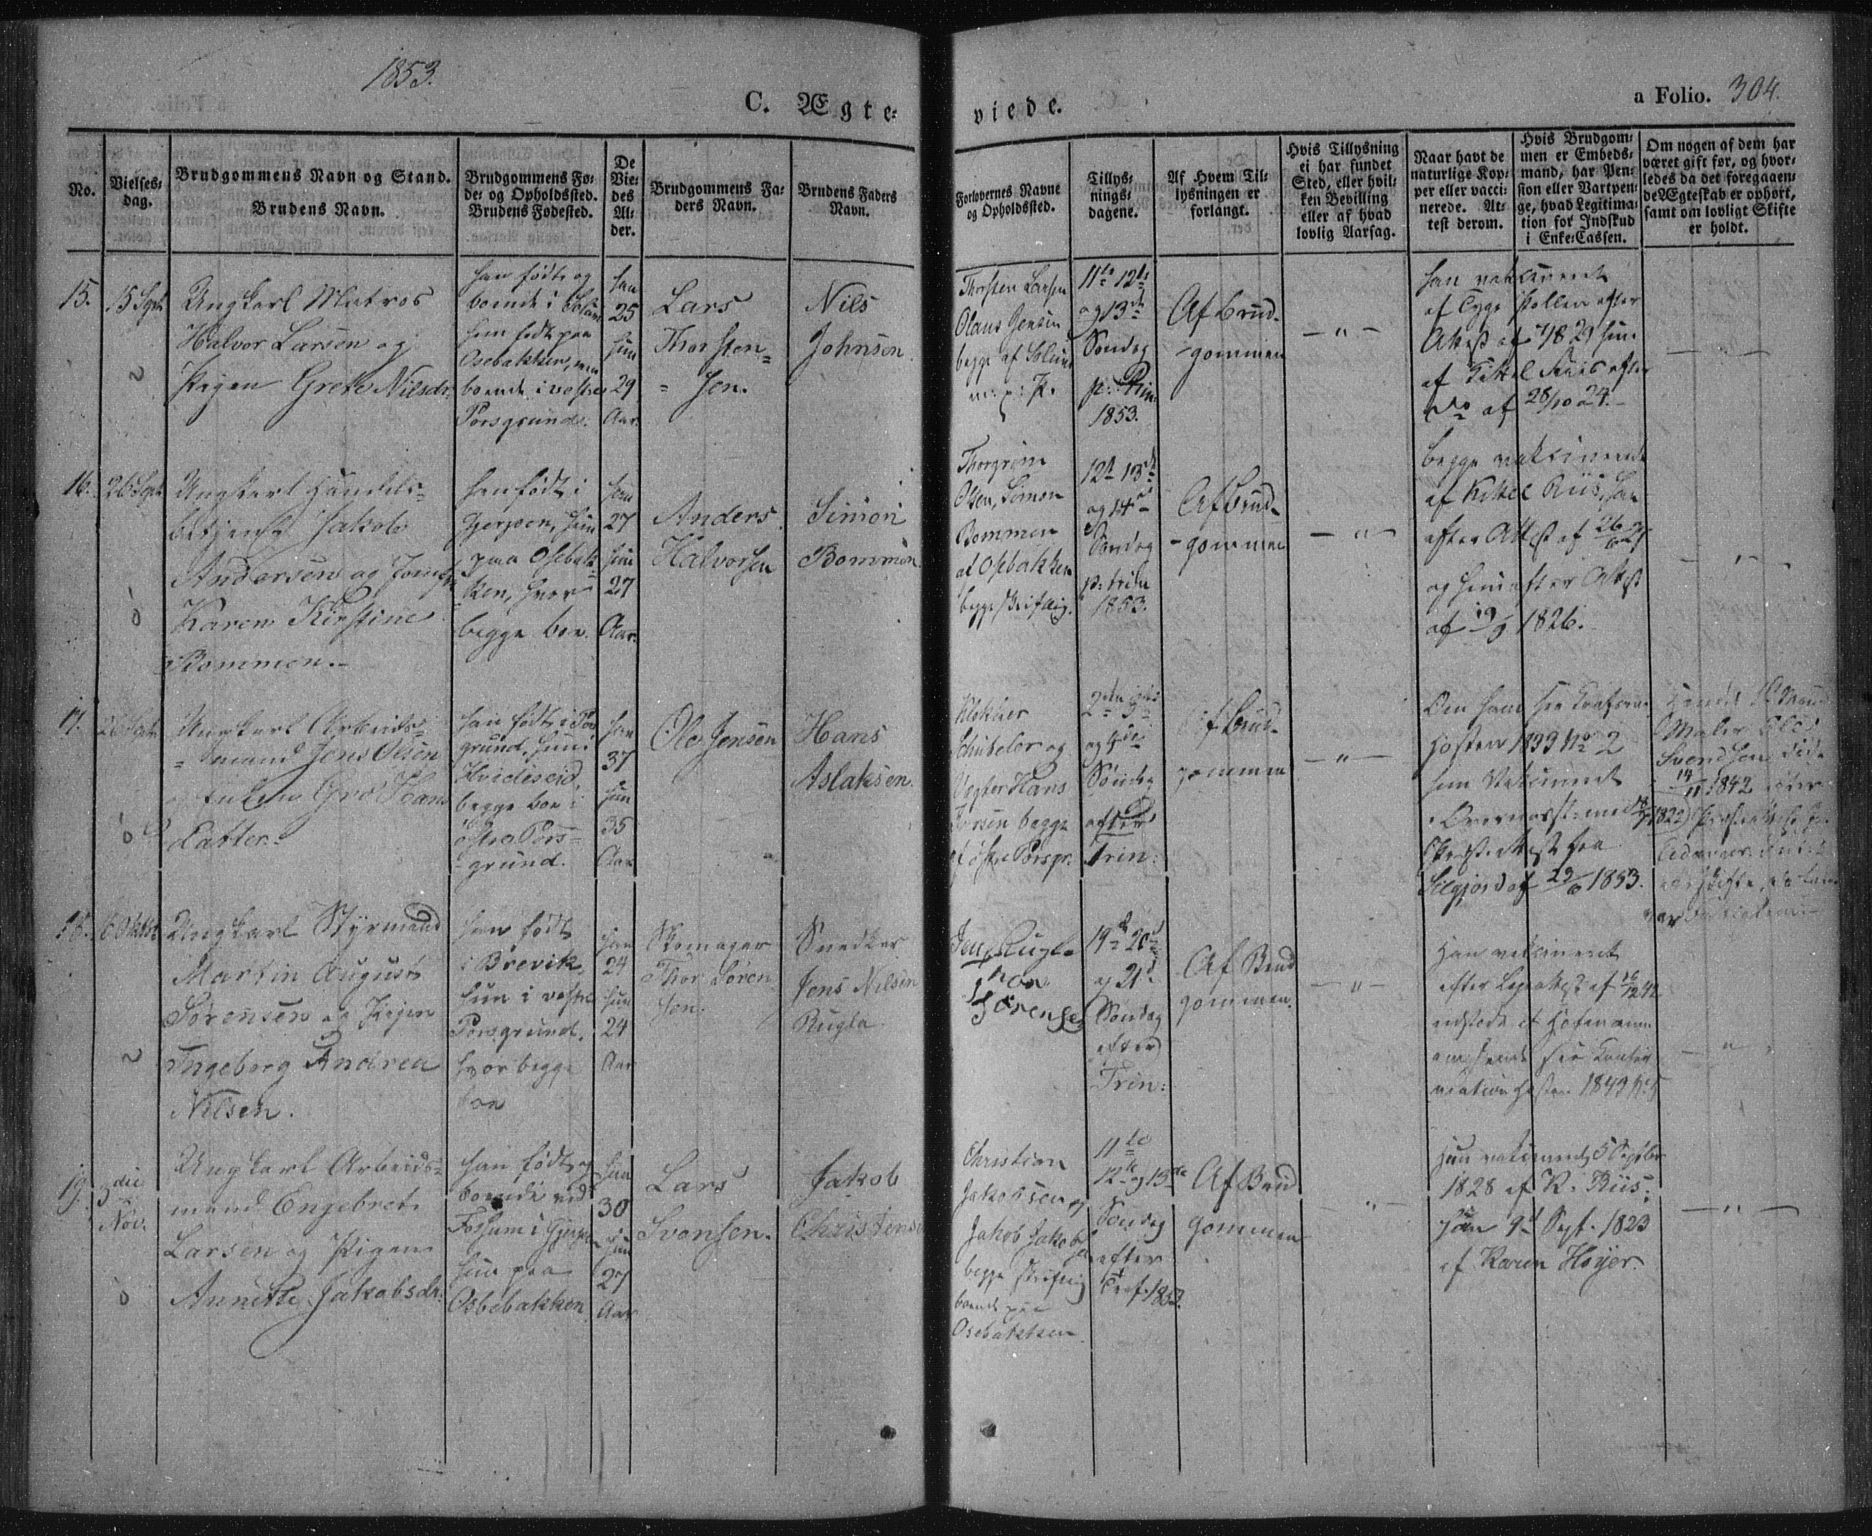 1853.
C. Ægte-
viede.
a Folio. 304.
No.
Vielses-
dag.
Brudgommens Navn og Stand.
Brudens Navn.
Brudgommens Fø-
de- og Opholdssted.
Brudens Fødested.
De
Vie-
des
Al-
der.
Brudgommens Fa-
ders Navn.
Brudens Faders
Navn.
Forlovernes Navne
og Opholdssted.
Tillys-
nings-
dagene.
Af Hvem Til-
lysningen er
forlangt.
Hvis Tillysning
ei har fundet
Sted, eller hvil-
ken Bevilling
eller af hvad
lovlig Aarsag.
Naar havt de
naturlige Kop-
per eller vacci-
nerede. At-
test derom.
Hvis Brudgom-
men er Embeds-
mand, har Pen-
sion eller Vartpen-
ge, hvad Legitima-
tion for Indskud
i Enke-Cassen.
Om nogen af dem har
været gift før, og hvor-
ledes da det foregaaen-
de Ægteskab er ophørt,
samt om lovligt Skifte
er holdt.
15.
15 Sept
Ungkarl Matros
Halvor Larsen og
Pigen Grete Nilsdr.
han født og
boende i
hun født paa
Osebakken, men
boende i vestre
Porsgrund.
han
25
hun
29
Aar.
Lars
Thorsten-
sen.
Nils
Johnsen.
Thorsten Larsen
Olaus Jensen
begge af
11te 12te
og 13de
Søndag
p. Trin.
1853.
Af Brud-
gommen
— " —
han vakcineret
af Tyge Hollen efter
Attest af 7/8 29 hun
af Kittel Riis efter
do af 28/10 24.
16.
26 Sept
Ungkarl Handels-
betjent Jakob
Andersen og Jomfr
Karen Kirstine
Bommen.
han født i
Gjerpen, hun
paa Osebak-
ken, hvor
begge boe.
han
27
hun
27
Aar.
Anders
Halvorsen
Simon
Bommen
Thorgrim
Olsen, Simon
Bommen
af Osebakken
begge skriftlig.
12te 13de
og 14de
Søndag
p. trin
1853.
Af Brud-
gommen
— " —
begge vakcinerede
af Kittel Riis, han
efter Attest af 26/6 27
og hun efter Attest
af 19/9 1826.
"
17.
26 Sept
Ungkarl Arbeids-
mand Jens Olsen
og Enken Gro Hans
Datter.
han født i Pors
grund, hun i
Hvideseid,
begge boe i
østre Pors-
grund.
han
37
hun
35
Aar
Ole Jensen
Hans
Aslaksen.
Klokker
Schubeler og
Vægter Hans
Iversen begge
af østre Porsgr.
2den 3die
og 4de
Søndag
efter
Trin:
Af Brud-
gommen
— " —
Om ham see Konfirm.
Høsten 1833 No 2
hun Vakcineret
Silgjord af 29/6 1853.
Maler Ole
Svendsen døde
14/11 1842 efter
18.
6 Oktbr
Ungkarl Styrmand
Martin August
Sørensen og Pigen
Ingeborg Andrea
Nilsen.
han født
i Brevik,
hun i vestre
Porsgrund.
hvor begge
boe
han
24
hun
24
Aar
Skomager
Thor Søren-
sen.
Snedker
Jens Nilsen
Rugla.
Jens Rugla
Thor
Sørensen
19de 20de
og 21de
Søndag
efter
Trin:
Af Brud
gommen.
— " —
Han vakcineret
efter Lægeattest af
udstædt af Hofmann
hun see Konfir-
mation Høsten 1843 No 5
— " —
19.
3die
Nov.
Ungkarl Arbeids-
mand Engebret
Larsen og Pigen
Annette Jakobsdr.
han født og
boende ved
Fossum i Gjerpen
hun paa
Osebakken
han
30
hun
27
Aar
Lars
Svensen.
Jakob
Christensen
Christian
Jakobsen og
Jakob Jakobsen
begge skriftlig
boende paa
Osebakken.
11te
12te og 13de
Søndag
efter
Tref. 1853.
Af Brud
gommen
"
Hun vakcineret 5 Septbr
1828 af K. Riis;
han 9d Sept. 1823
af Karen Høyer.
— " —